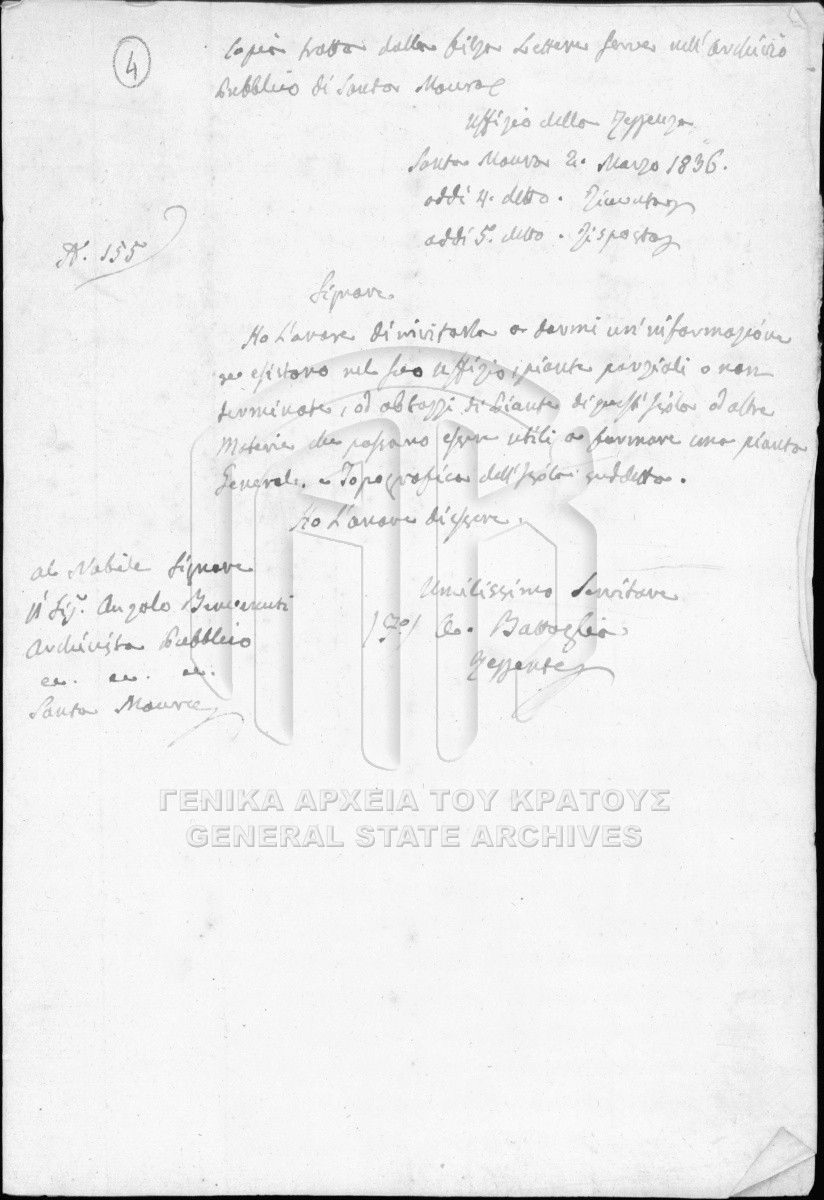 4
Copia tratta dalla filza Lettere nell'Archivio
Pubblico di Santa Maura
Uffizio della Reggenza
Santa Maura 2. Marzo 1836.
addì 4. detto. Ricevuta
addì 5. detto. Risposta
N. 155
Signore
Ho l'onore di invitarla a darmi un'informazione
se esistano nel suo Uffizio, piante parziali o non
terminate, od abbozzi di Piante di quest'Isola od altre
Materie che possano essere utili a formare una pianta
Generale e Topografica dell'Isola suddetta.
Ho l'onore di essere.
Umilissimo Servitore
Battaglia
Reggente
al Nobile Signore
Il Sigr. Angolo Benvenuti
Archivista Pubblico
ec. ec. ec.
Santa Maura
ΓΕΝΙΚΑ ΑΡΧΕΙΑ ΤΟΥ ΚΡΑΤΟΥΣ
GENERAL STATE ARCHIVES